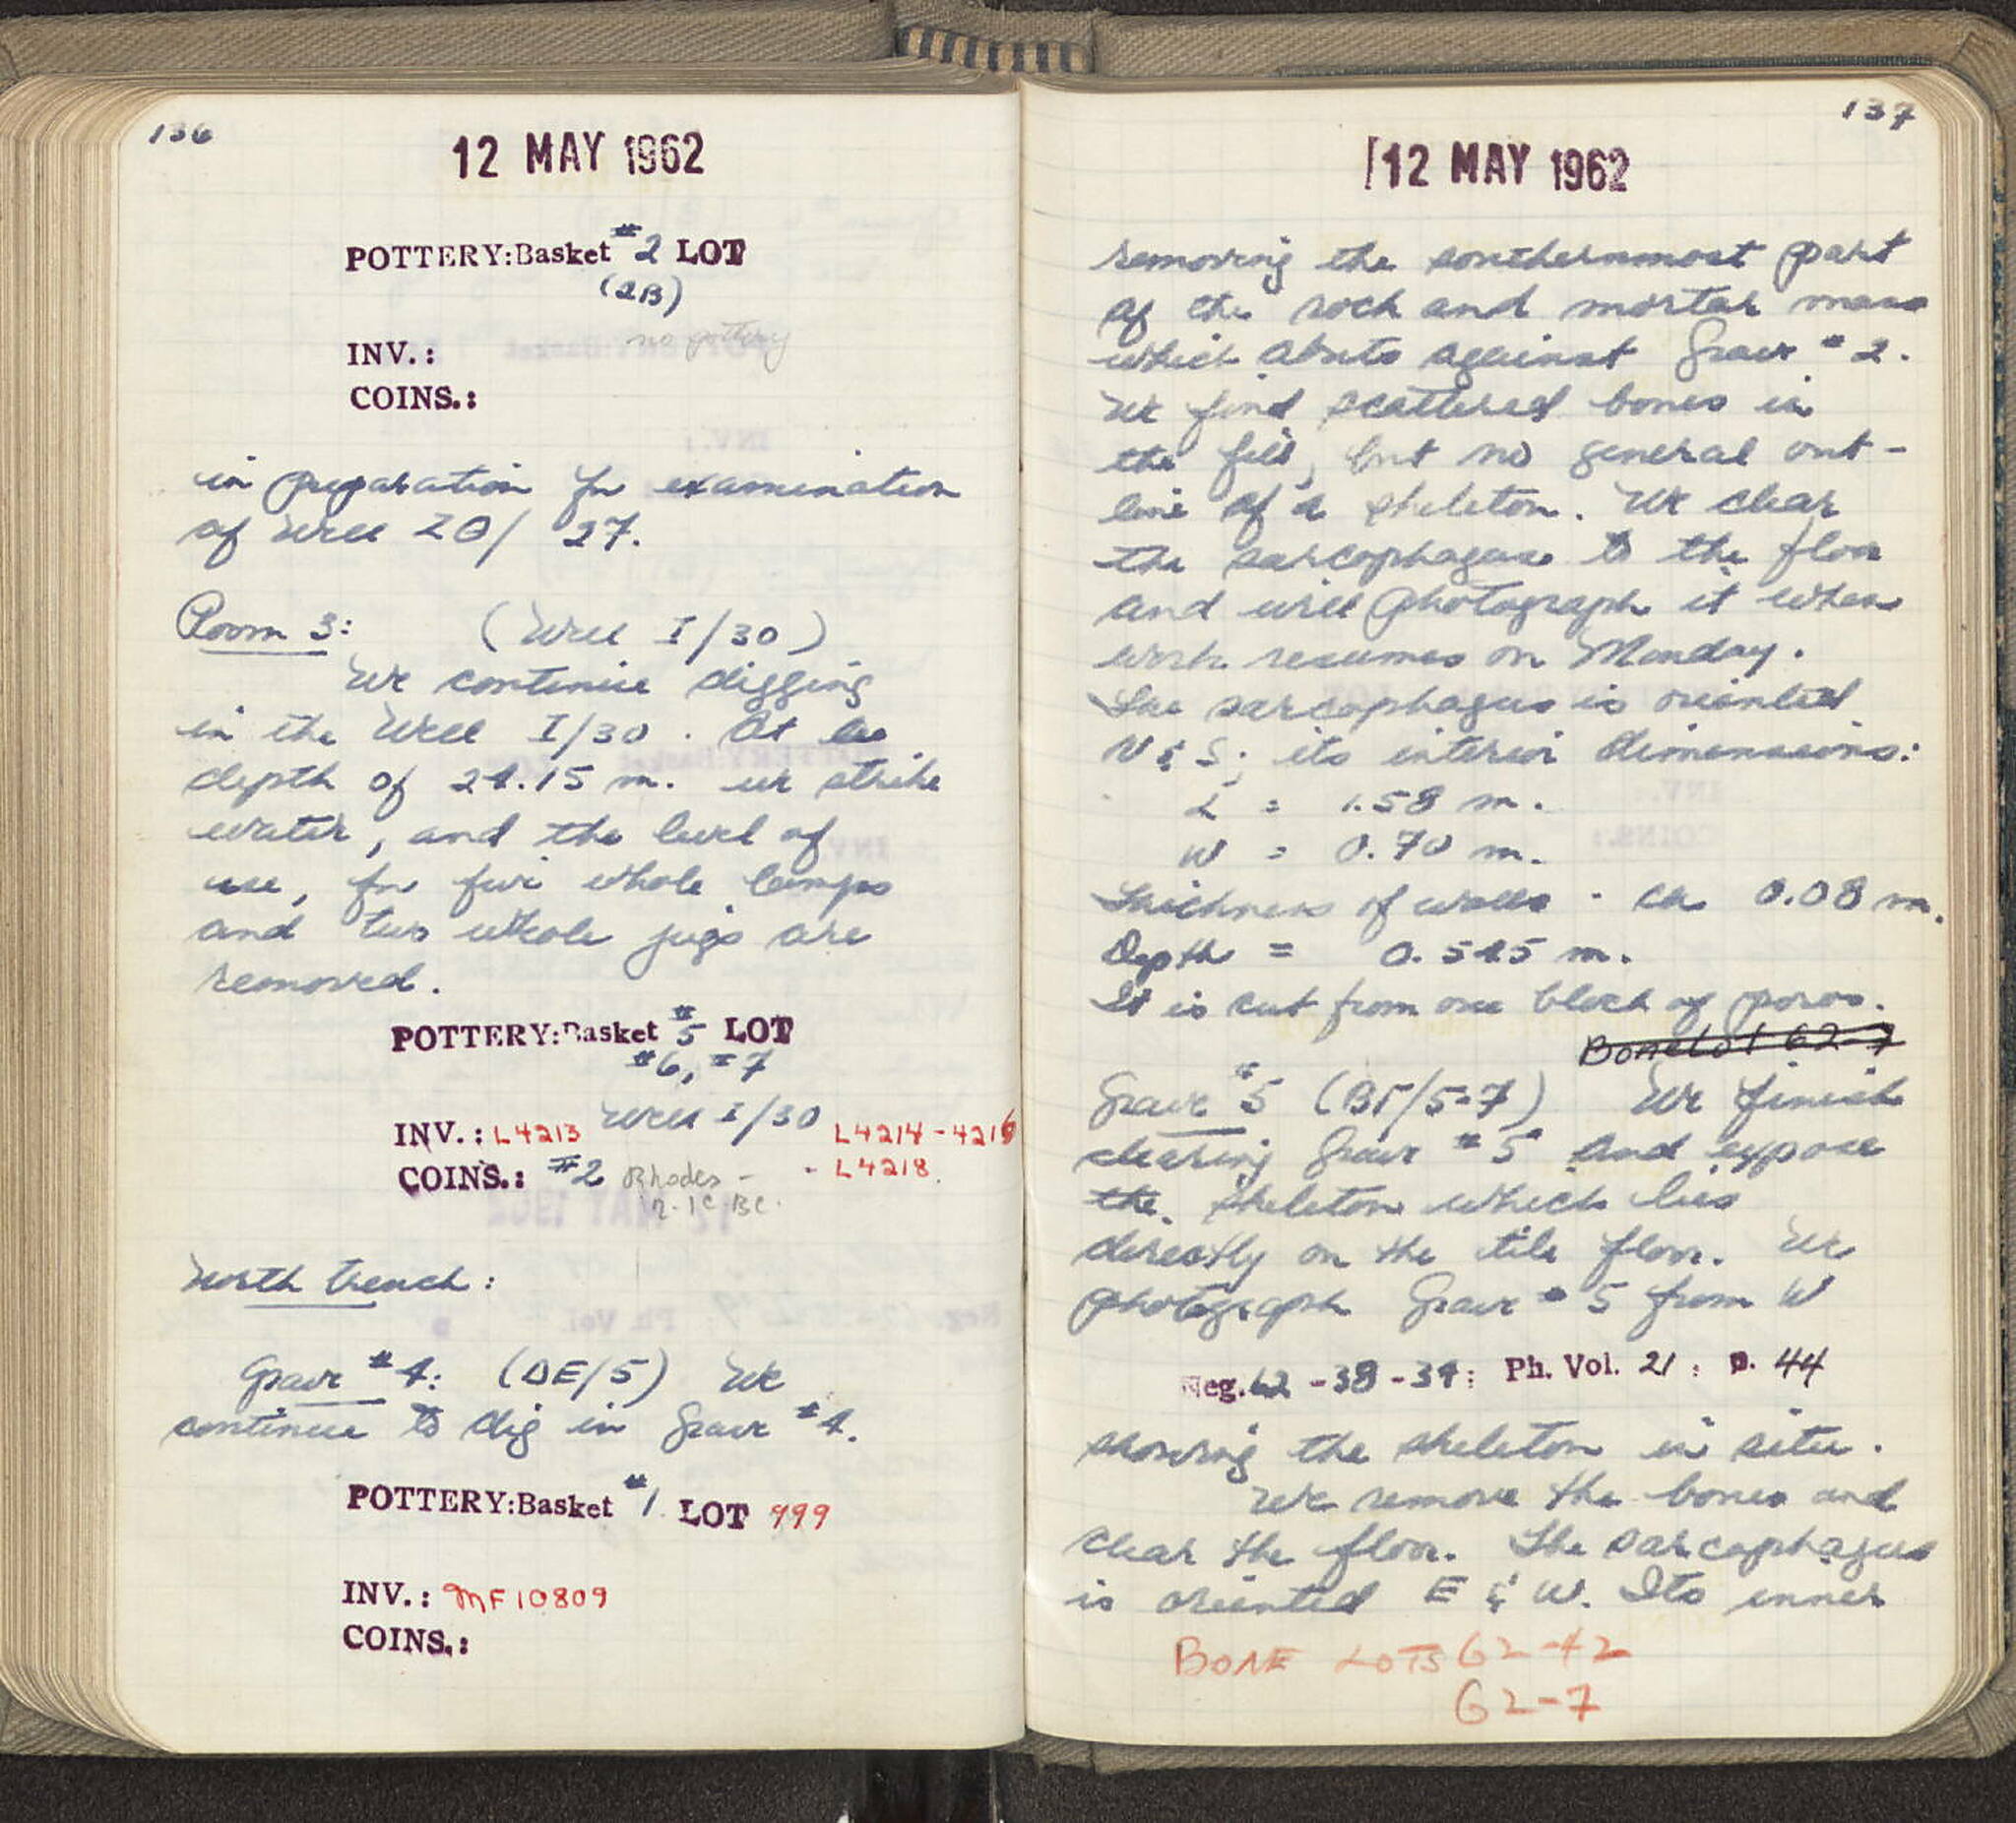 136
12 MAY 1962
POTTERY:Basket #2 LOT
(2B)
no pottery
INV.:
COINS.:
in preparation for examination
of Well ZΘ/ 27.
Room 3: (Well I/30)
We continue digging
in the Well I/30. At
depth of 24.15 m. we strike
water, and the level of
use, for five whole lamps
and two whole jugs are
removed.
POTTERY:Basket #5 LOT
#6, #7
Well I/30
INV.: L4213 L4214-4216
COINS.: #2 Rhodes - - L4218.
2-1C BC.
North trench:
Grave #4: (ΔE/5) We
continue to dig in Grave #4.
POTTERY:Basket #1 LOT 999
INV.: MF10809
COINS.:
137
12 MAY 1962
removing the southernmost part
of the rock and mortar mass
which abuts against Grave #2.
We find scattered bones in
the fill, but no general out-
line of a skeleton. We clear
the sarcophagus to the floor
and will photograph it when
work resumes on Monday.
The sarcophagus is oriented
N & S; its interior dimensions:
L = 1.58 m.
W = 0.70 m.
Thickness of walls - ca 0.08 m.
Depth = 0.545 m.
It is cut from one block of poros.
Bone Lot 62-7
Grave #5 (BΓ/5-7) We finish
clearing Grave #5 and expose
the skeleton which lies
directly on the tile floor. We
photograph Grave #5 from W
Neg. 62-38-34; Ph. Vol. 21, p. 44
showing the skeleton in situ.
We remove the bones and
clear the floor. The sarcophagus
is oriented E & W. Its inner
BONE LOTS 62-42
62-7